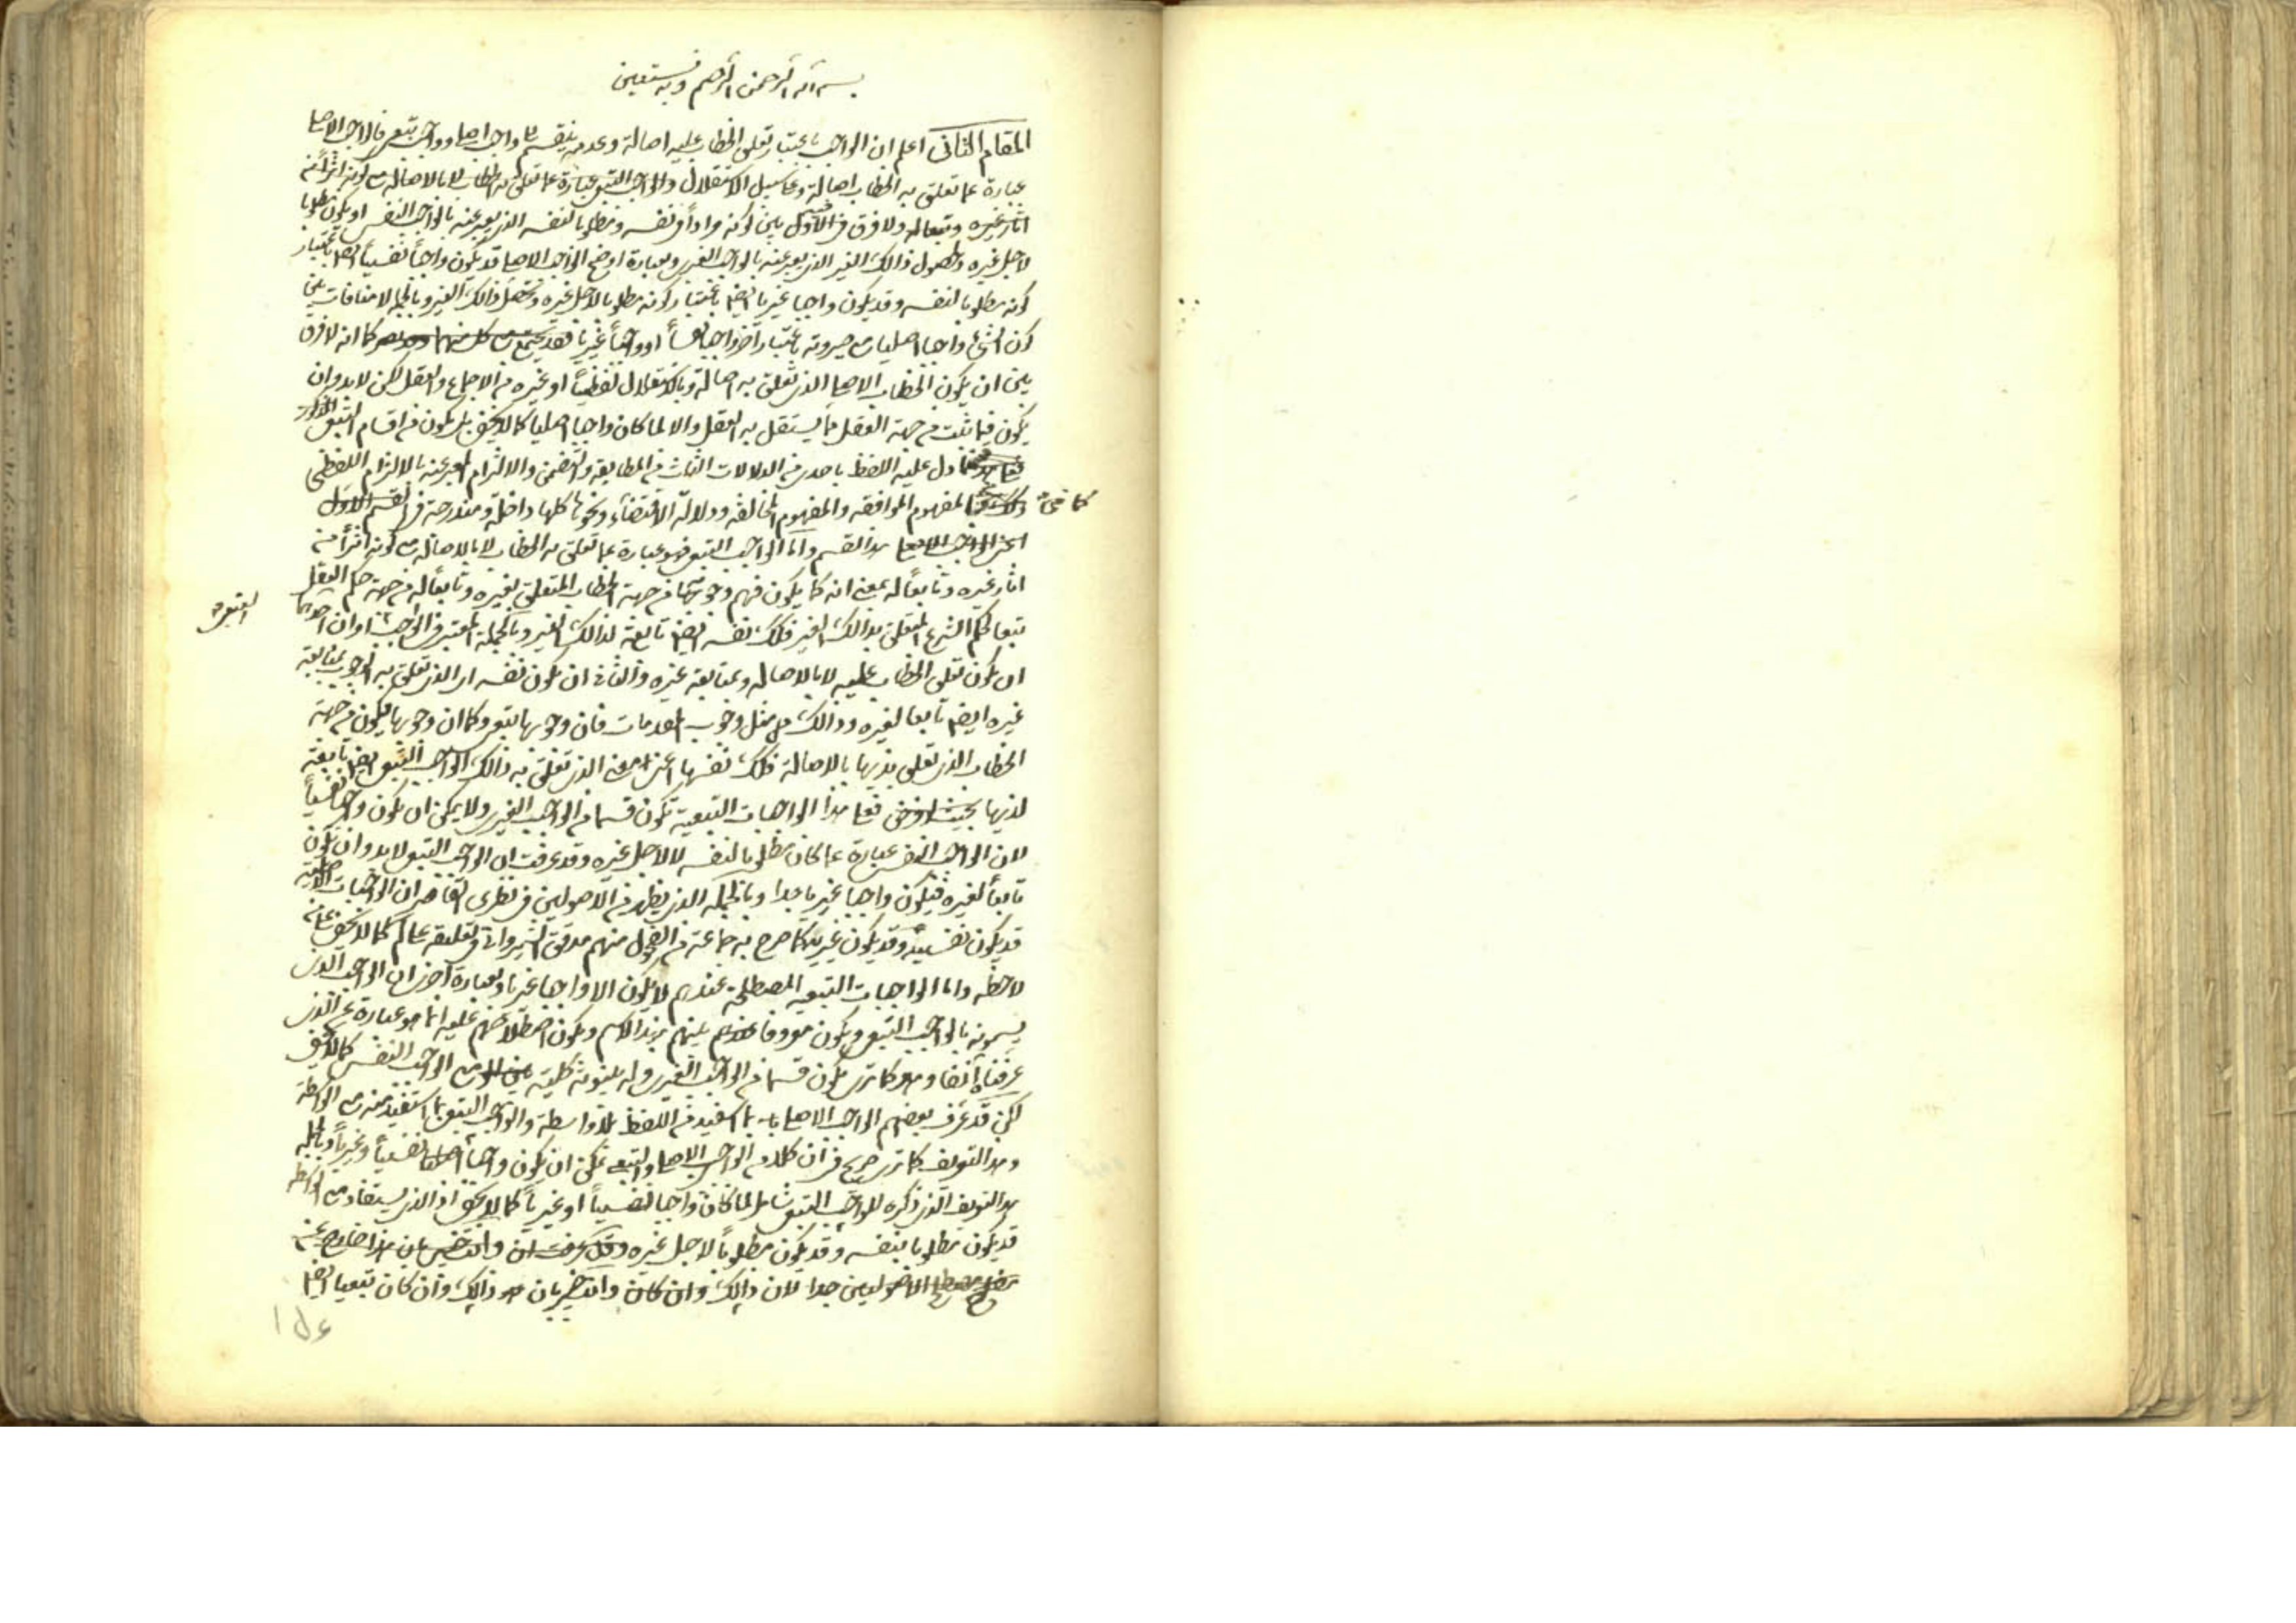 بسم الله الرحمن الرحيم وبه نستعين
المقام الثانى اعلم ان الواجب باعتبار تعلق الخطاب عليه اصالة وعدمه ينقسم الى واجب اصلى وواجب تبعى فالواجب الاصلى
عبارة عما تعلق به الخطاب اصالة وعلى سبيل الاستقلال والواجب التبعى عبارة عما تعلق به الخطاب لا بالاصالة مع كونه اثراً من
اثار غيره وتبعا له ولا فرق فى الاول بين كونه مراداً فى نفسه ومطلوبا لنفسه الذى يعبر عنه بالواجب النفسى او يكون مطلوبا
لاجل غيره ولحصول ذالك الغير الذى يعبر عنه بالواجب الغيرى وبعبارة اوضح الواجب الاصلى قد يكون واجباً نفسياً ايضا باعتبار
كونه مطلوبا لنفسه وقد يكون واجبا غيريا ايضا باعتبار كونه مطلوبا لاجل غيره وتحصل ذالك الغير وبالجمله لا منافات بين
كون الشئ واجبا اصليا مع صيرورته باعتبار آخر واجبا نفسياً او واجباً غيريا فقد يجتمع مع كل منهما كما انه لا فرق
بين ان يكون الخطاب الاصلى الذى تعلق به اصالة وبالاستقلال لفظياً او غيره من الاجماع والعقل لكن لابد وان
يكون فيما ثبت من جهة العقل مما يستقل به العقل والا لما كان واجبا اصليا كما لا يخفى بل يكون من اقسام التبعى المذكور
دل عليه اللفظ باحدى الدلالات الثلث من المطابقه والتضمن والالتزام المعبر عنه بالالتزام اللفظى
كما فى المفهوم الموافقه والمفهوم المخالفه ودلالة الاقتضاء ونحوها كلها داخلة ومندرجة فى القسم الاول
هذا القسم واما الواجب التبعى فهو عبارة عما تعلق به الخطاب لا بالاصالة مع كونه اثراً من
اثار غيره وتابعاً له بمعنى انه كما يكون فهم وجوبها من جهة الخطاب المتعلق بغيره وتابعاً له من جهة حكم العقل
تبعا لحكم الشرع المتعلق بذالك الغير فكك نفسه ايضا تابعة لذالك الغير وبالجملة المعتبر فى الواجب امران احدهما
التبعى
ان يكون تعلق الخطاب عليه لا بالاصاله وبمتابعة غيره والثانى ان يكون نفسه اى الذى تعلق به الوجوب بمتابعة
غيره ايضا تابعا لغيره وذالك مثل وجوب المقدمات فان وجوبها تبعى وكما ان وجوبها يكون من جهة
الخطاب الذى تعلق بذيها بالاصالة فكك نفسها اعنى الذى تعلق به ذالك الواجب التبعى ايضا تابعة
لذيها فعلى هذا الواجبات التبعية تكون قسما من الواجب الغيرى ولا يمكن ان يكون واجبا نفسياً
لان الواجب النفسى عبارة عما كان مطلوبا لنفسه لا لاجل غيره وقد عرفت ان الواجب التبعى لابد وان يكون
تابعاً لغيره فيكون واجبا غيريا جدا وبالجمله الذى يظهر من الاصوليين فى نظرى القاصر ان الواجبات الاصلية
قد يكون نفسية وقد يكون غيرية كما صرح به جماعة من الفحول منهم مدقق الشيروانى فى تعليقه على لم كما لا يخفى على من
لاحظه واما الواجبات التبعيه المصطلحة عندهم لا يكون الا واجبا غيريا وبعبارة اخرى ان الواجب الذى
يسمونه بالواجب التبعى ويكون معروفا بينهم بهذا الاسم ويكون اصطلاحهم عليه انما هو عبارة عن الذى
عرفناه آنفا وهو كما ترى يكون قسما من الواجب الغيرى وله بينونة كلية مع الواجب النفسى كما لا يخفى
لكن قد عرف بعضهم الواجب الاصلى بما استفيد من اللفظ بلا واسطة والواجب التبعى بما استفيد منه مع الواسطة
وهذا التعريف كما ترى صريح فى ان كلا من الواجب الاصلى والتبعى يمكن ان يكون واجباً نفسياً وغيرياً وبالجمله
هذا التعريف الذى ذكره للواجب التبعى شامل لما كان واجبا نفسياً او غيرياً كما لا يخفى اذ الذى يستفاد مع الواسطه
قد يكون مطلوبا بنفسه وقد يكون مطلوباً لاجل غيره وانت خبير بان هذا خارج عن
مصطلح الاصوليين جدا لان ذالك وان كان وانت خبير بان ذالك وان كان تبعيا ايضا